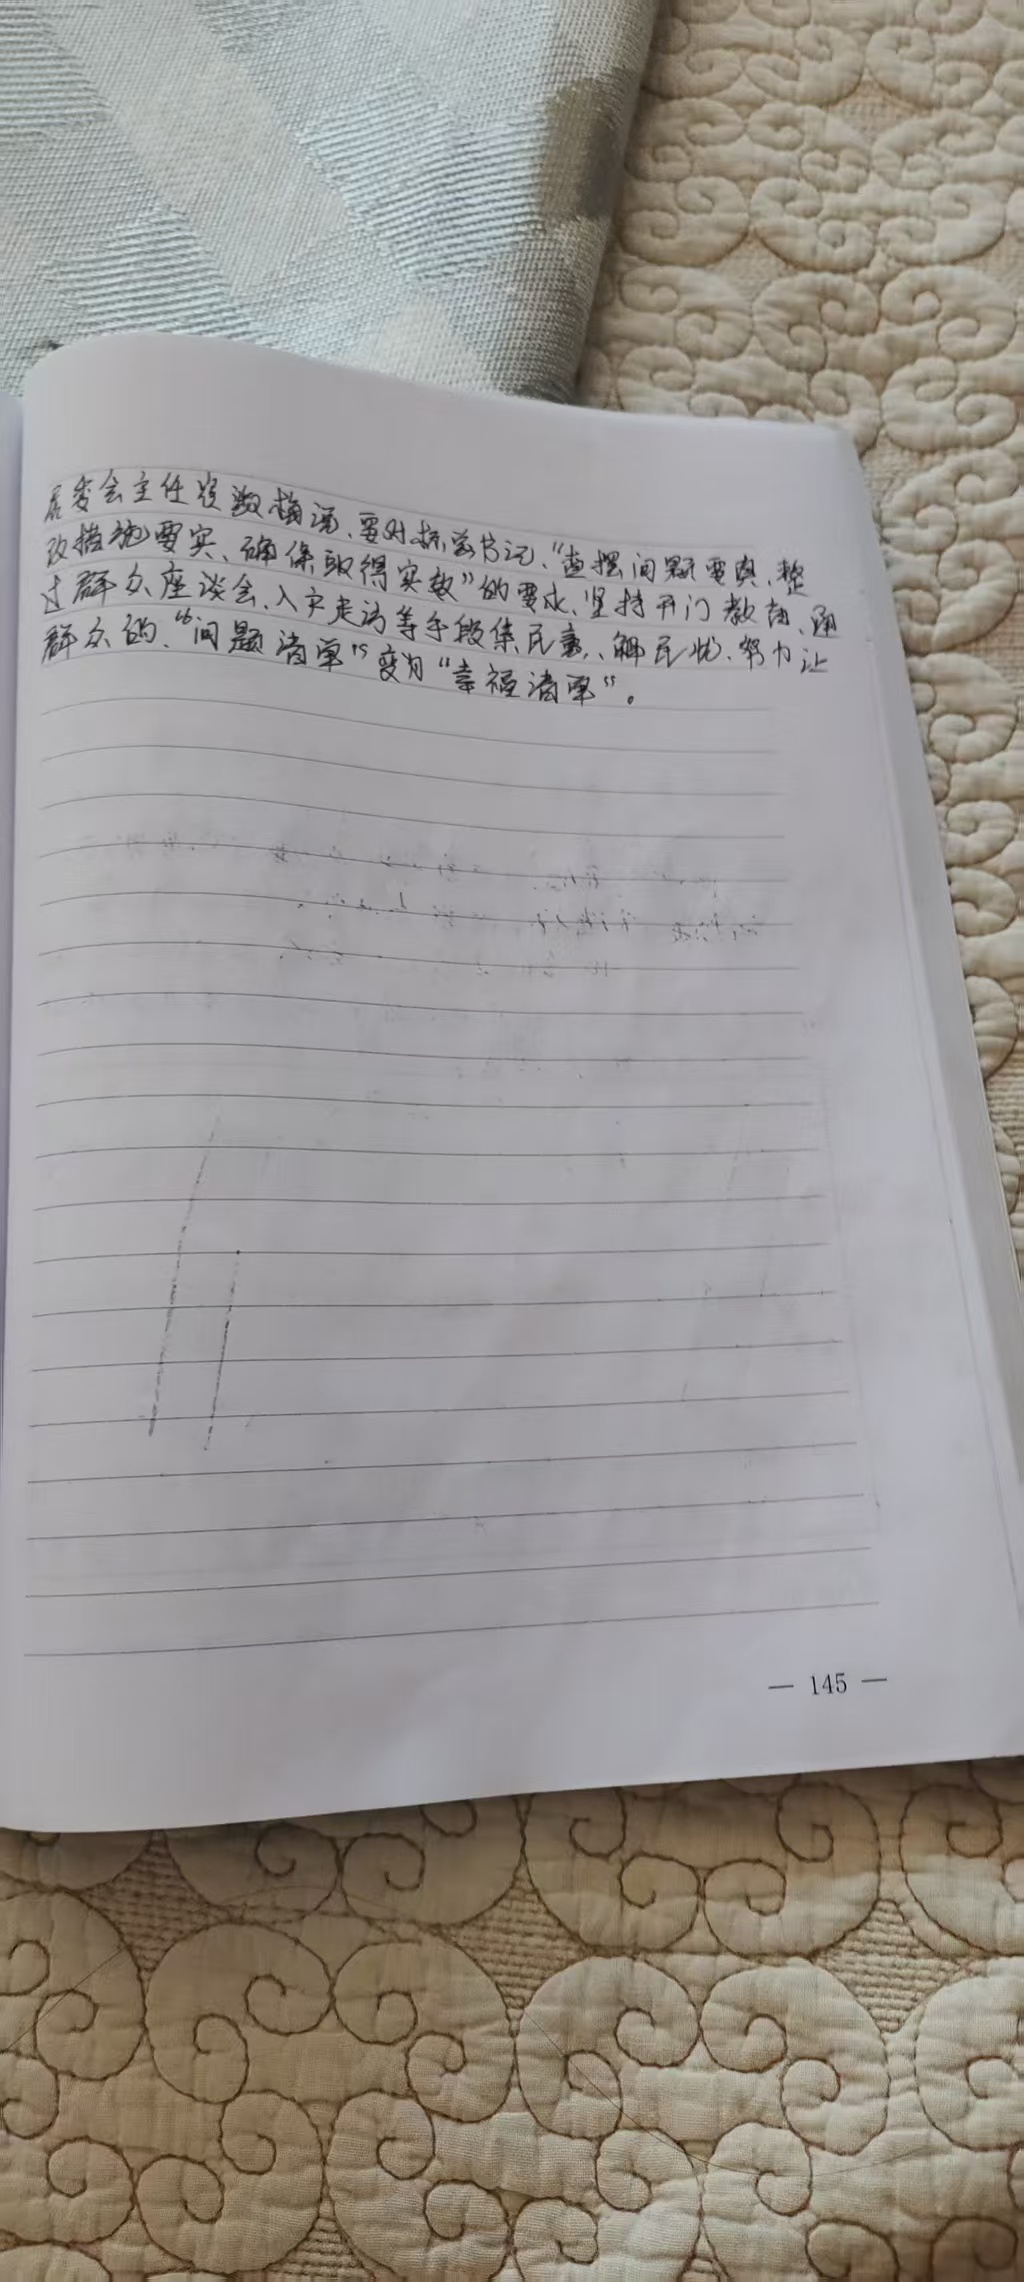 居委会主任 梅说、要对标总书记、“查摆问题要真、整
改措施要实、确保取得实效”的要求、坚持开门教育、通
过群众座谈会、入户走访等手段集民意、解民忧、努力让
群众的、“问题清单”变为“幸福清单”。
— 145 —